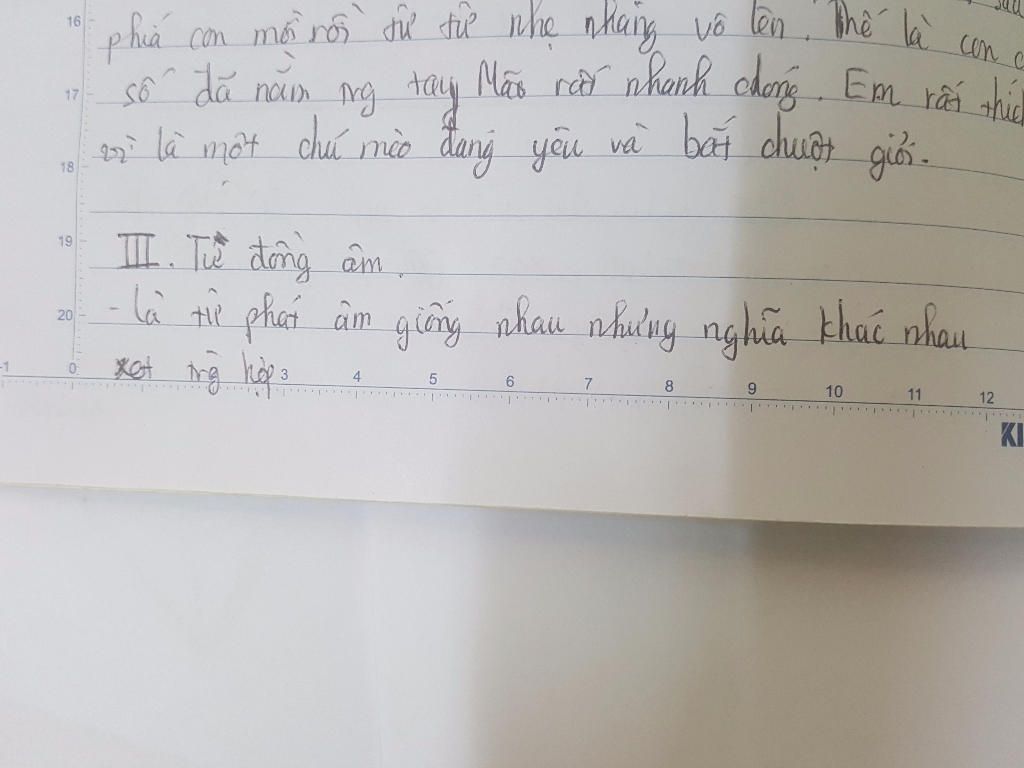 phiá con mồi rồi từ từ nhẹ nhàng vồ lên. Thế là con
số đã nằm ng tay Mão rất nhanh chóng. Em rất thích
vì là một chú mèo đáng yêu và bắt chuột giỏi.
III. Từ đồng âm.
- là từ phát âm giống nhau nhưng nghĩa khác nhau
xet trg hợp
16
17
18
19
20
-1 0 3 4 5 6 7 8 9 10 11 12
KI